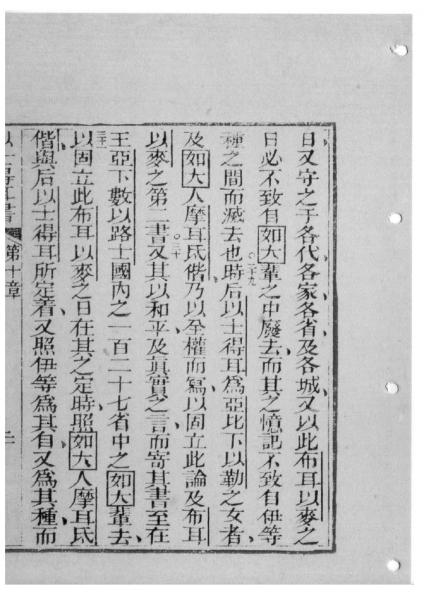 日又守之于各代各家各省及各城又以此布耳以麥之
日必不致自如大輩之中廢去而其之憶記不致自伊等
○二十九
種之間而滅去也時后以士得耳為亞比下以勒之女者
及如大人摩耳氐偕乃以全權而寫以固立此論及布耳
○三十
以麥之第二書又其以和平及真實之言而寄其書至在
王亞下數以路士國內之一百二十七省中之如大輩去
三十一
以固立此布耳以麥之日在其之定時照如大人摩耳氐
偕與后以士得耳所定着又照伊等為其自又為其種而
以士得耳書
第十章
二